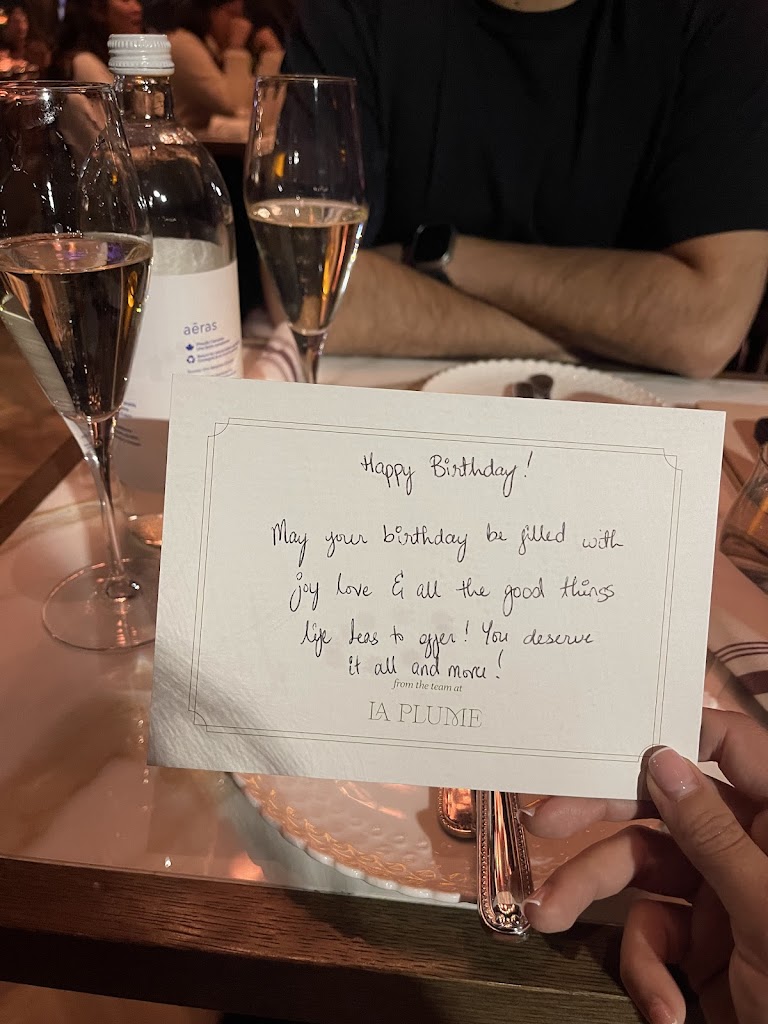 aēras
Happy Birthday!
May your birthday be filled with
joy love & all the good things
life has to offer! You deserve
it all and more!
from the team at
LA PLUME